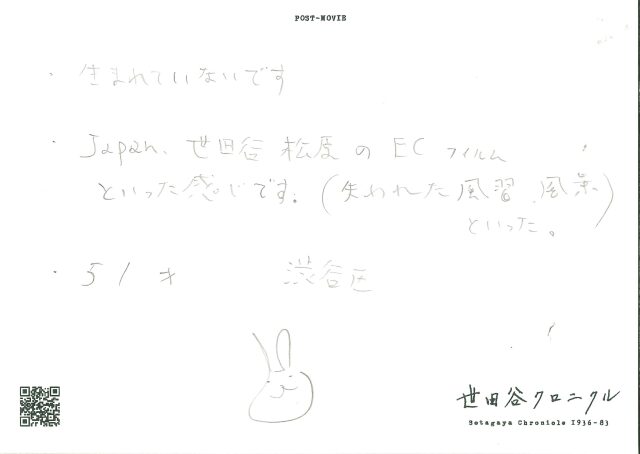 POST-MOVIE
・生まれていないです
・Japan、世田谷 松原の EC フィルム
といった感じです。(失われた風習、風景)
といった。
・51才 渋谷区
世田谷クロニクル
Setagaya Chronicle 1936-83